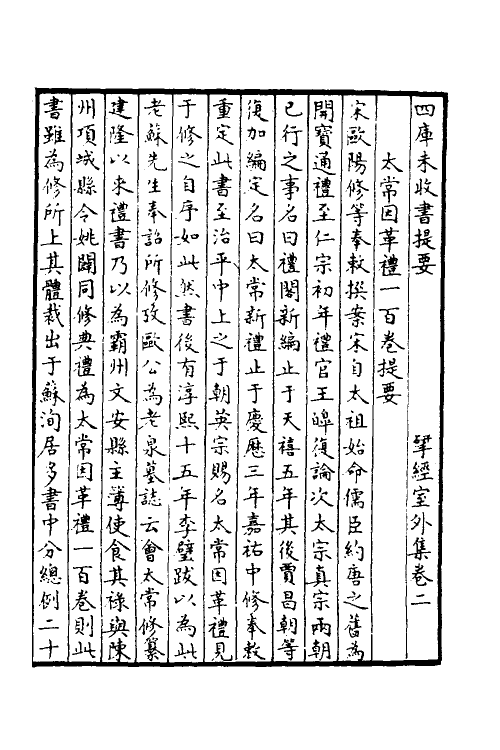 四庫未收書提要　揅經室外集卷二
太常因革禮一百卷提要
宋歐陽修等奉敕撰案宋自太祖始命儒臣約唐之舊為
開寶通禮至仁宗初年禮官王皥復論次太宗真宗兩朝
已行之事名曰禮閣新編止于天禧五年其後賈昌朝等
復加編定名曰太常新禮止于慶曆三年嘉祐中修奉敕
重定此書至治平中上之于朝英宗賜名太常因革禮見
于修之自序如此然書後有淳熙十五年李壁跋以為此
老蘇先生奉詔所修攷歐公為老泉墓誌云會太常修纂
建隆以來禮書乃以為霸州文安縣主簿使食其祿與陳
州項城縣令姚闢同修典禮為太常因革禮一百卷則此
書雖為修所上其體裁出于蘇洵居多書中分總例二十